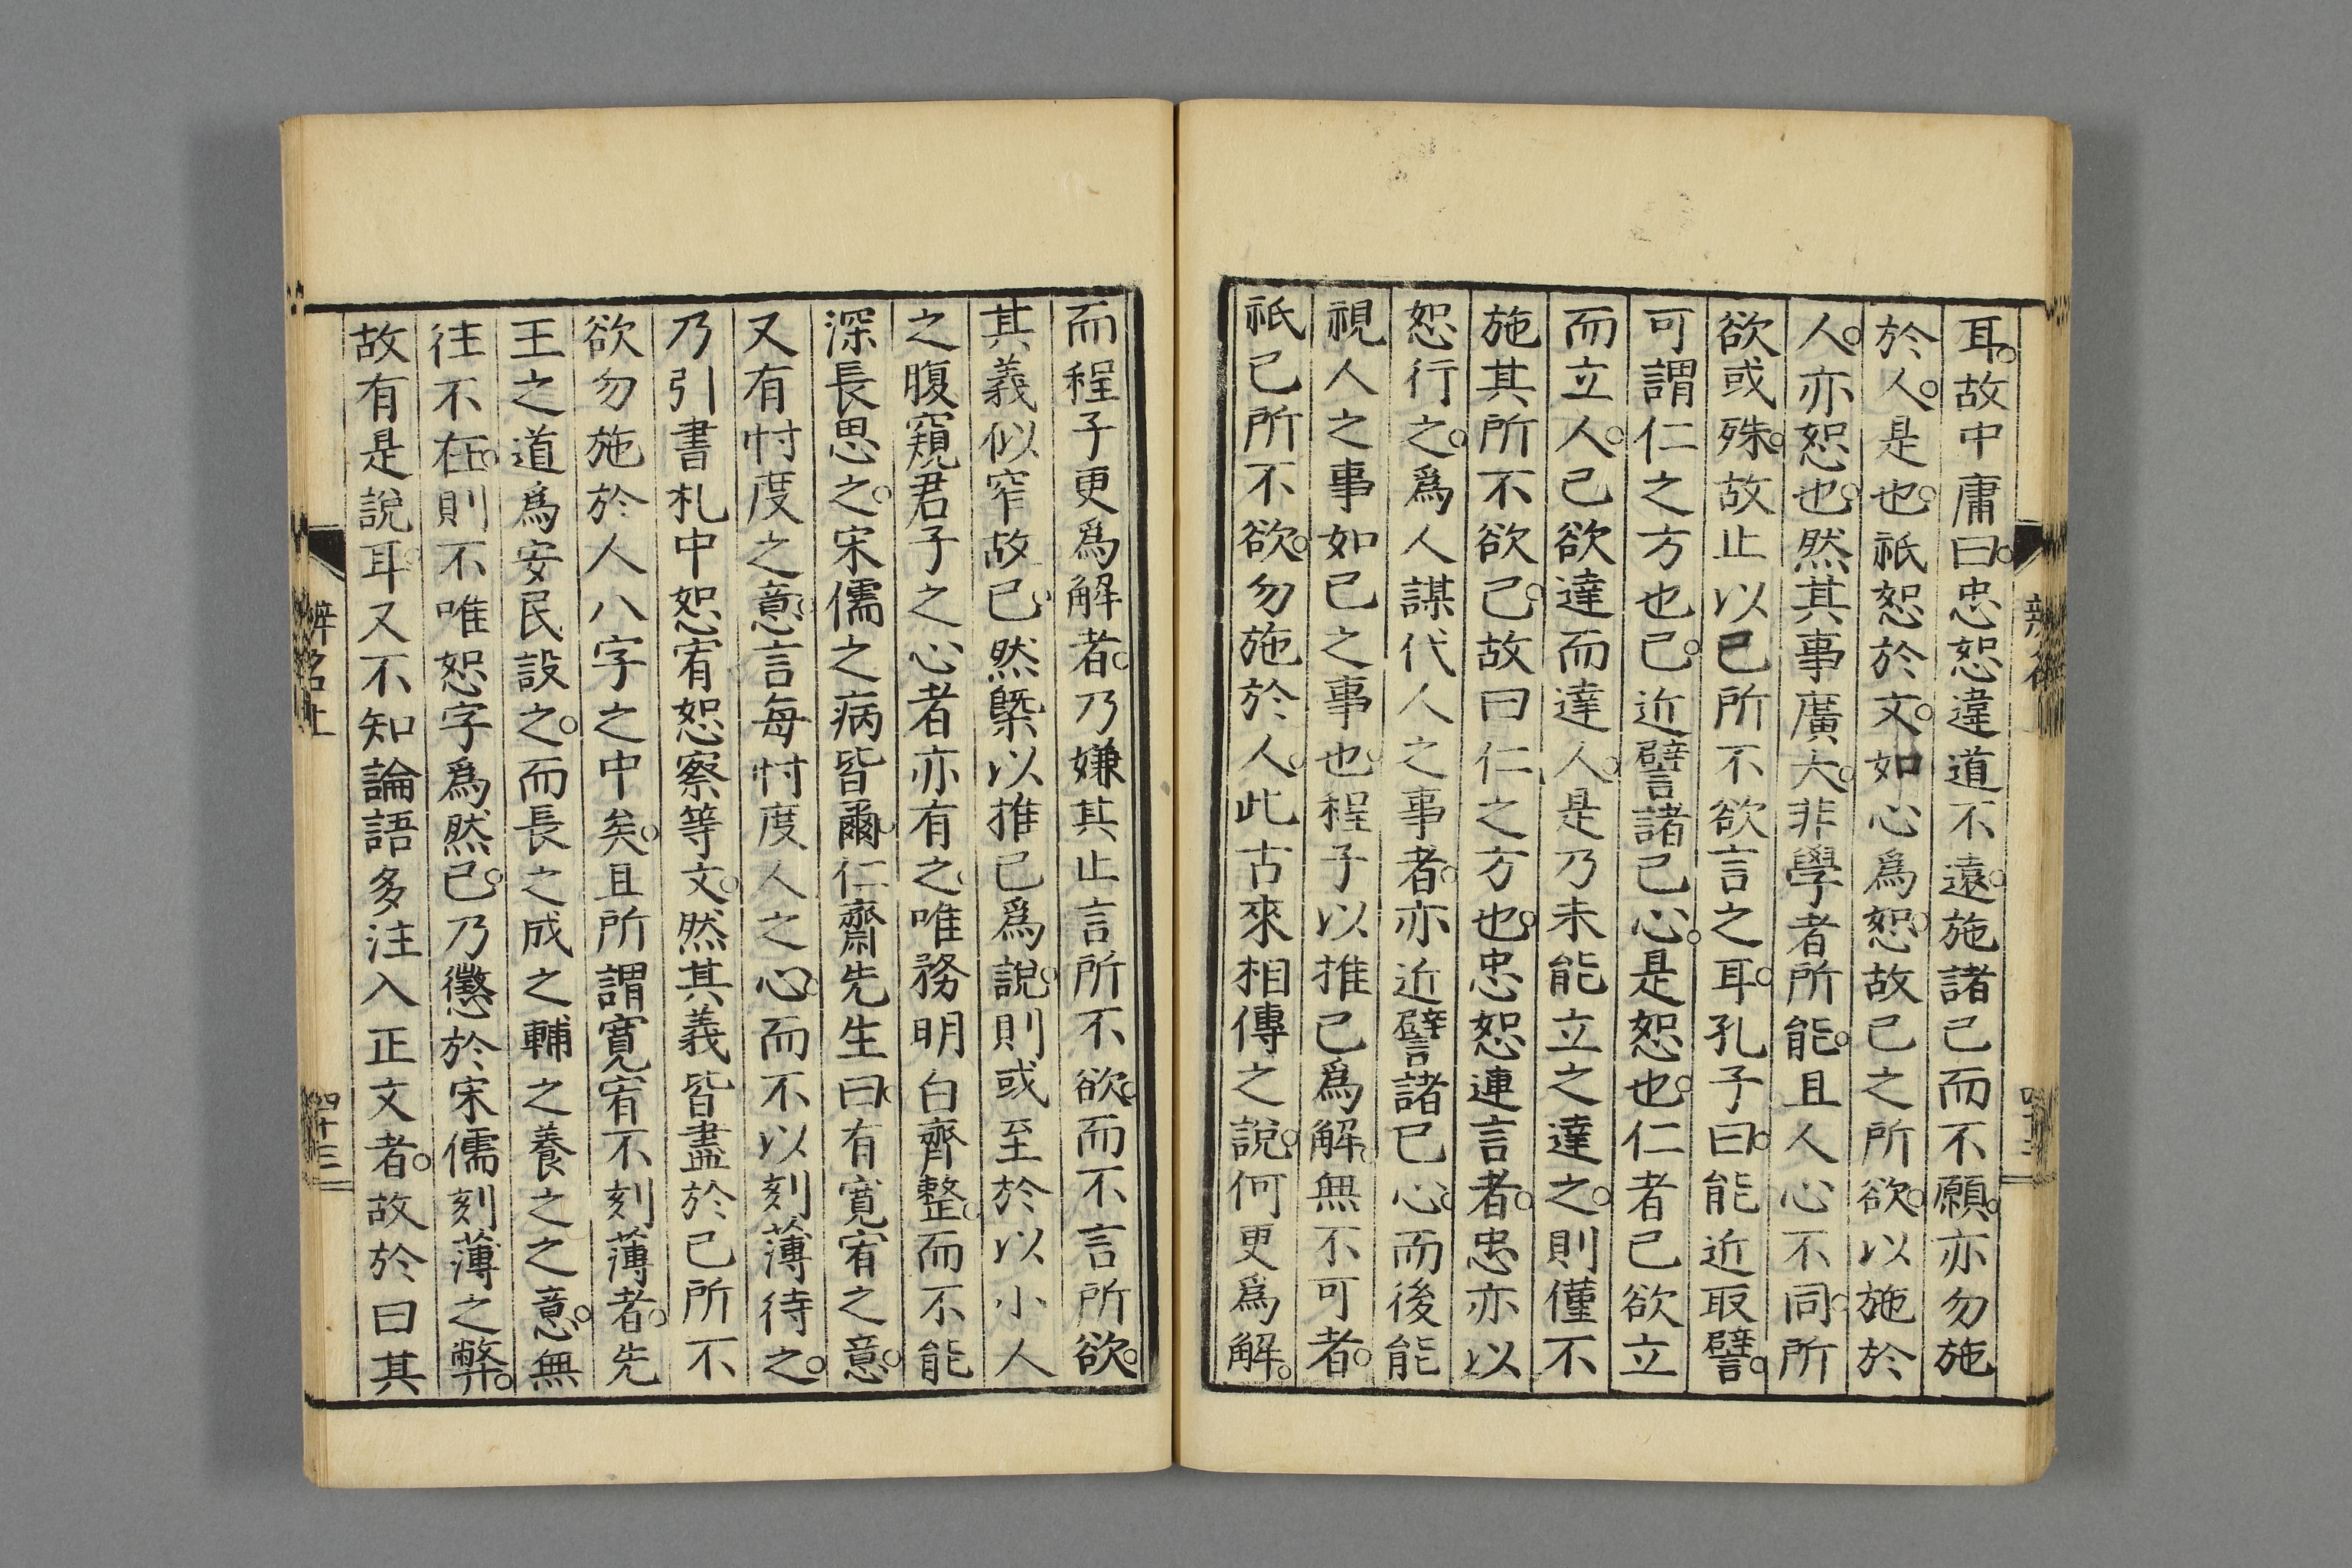 耳。故中庸曰。忠恕違道不遠。施諸己而不願。亦勿施
於人。是也。祇恕於文。如心爲恕。故己之所欲。以施於
人。亦恕也。然其事廣大。非學者所能。且人心不同。所
欲或殊。故止以已所不欲言之耳。孔子曰。能近取譬。
可謂仁之方也已。近譬諸己心。是恕也。仁者己欲立
而立人。己欲達而達人。是乃未能立之達之。則僅不
施其所不欲已。故曰仁之方也。忠恕連言者。忠亦以
恕行之。爲人謀代人之事者。亦近譬諸已心。而後能
視人之事如已之事也。程子以推己爲解。無不可者。
祇已所不欲。勿施於人。此古來相傳之說。何更爲解。
而程子更爲解者。乃嫌其止言所不欲。而不言所欲。
其義似窄故已。然槩以推已爲說。則或至於以小人
之腹窺君子之心者亦有之。唯務明白齊整。而不能
深長思之。宋儒之病皆爾。仁齋先生曰。有寬宥之意。
又有忖度之意。言每忖度人之心。而不以刻薄待之。
乃引書札中恕宥恕察等文。然其義皆盡於已所不
欲勿施於人八字之中矣。且所謂寬宥不刻薄者。先
王之道爲安民設之。而長之成之輔之養之之意。無
往不在。則不唯恕字爲然已。乃懲於宋儒刻薄之弊。
故有是說耳。又不知論語多注入正文者。故於曰其
辨名上
四十三